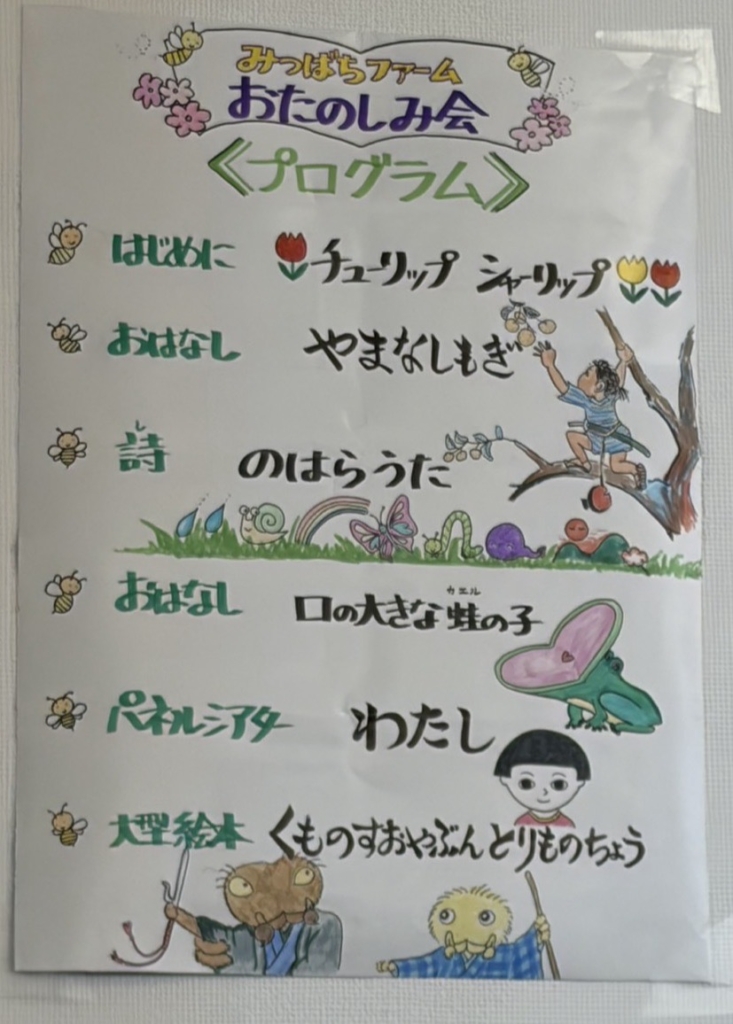 みつばちファーム
おたのしみ会
《プログラム》
はじめに チューリップ シャーリップ
おはなし やまなしもぎ
詩 し のはらうた
おはなし 口の大きな蛙の子 カエル
パネルシアター わたし
大型絵本 くものすおやぶんとりものちょう